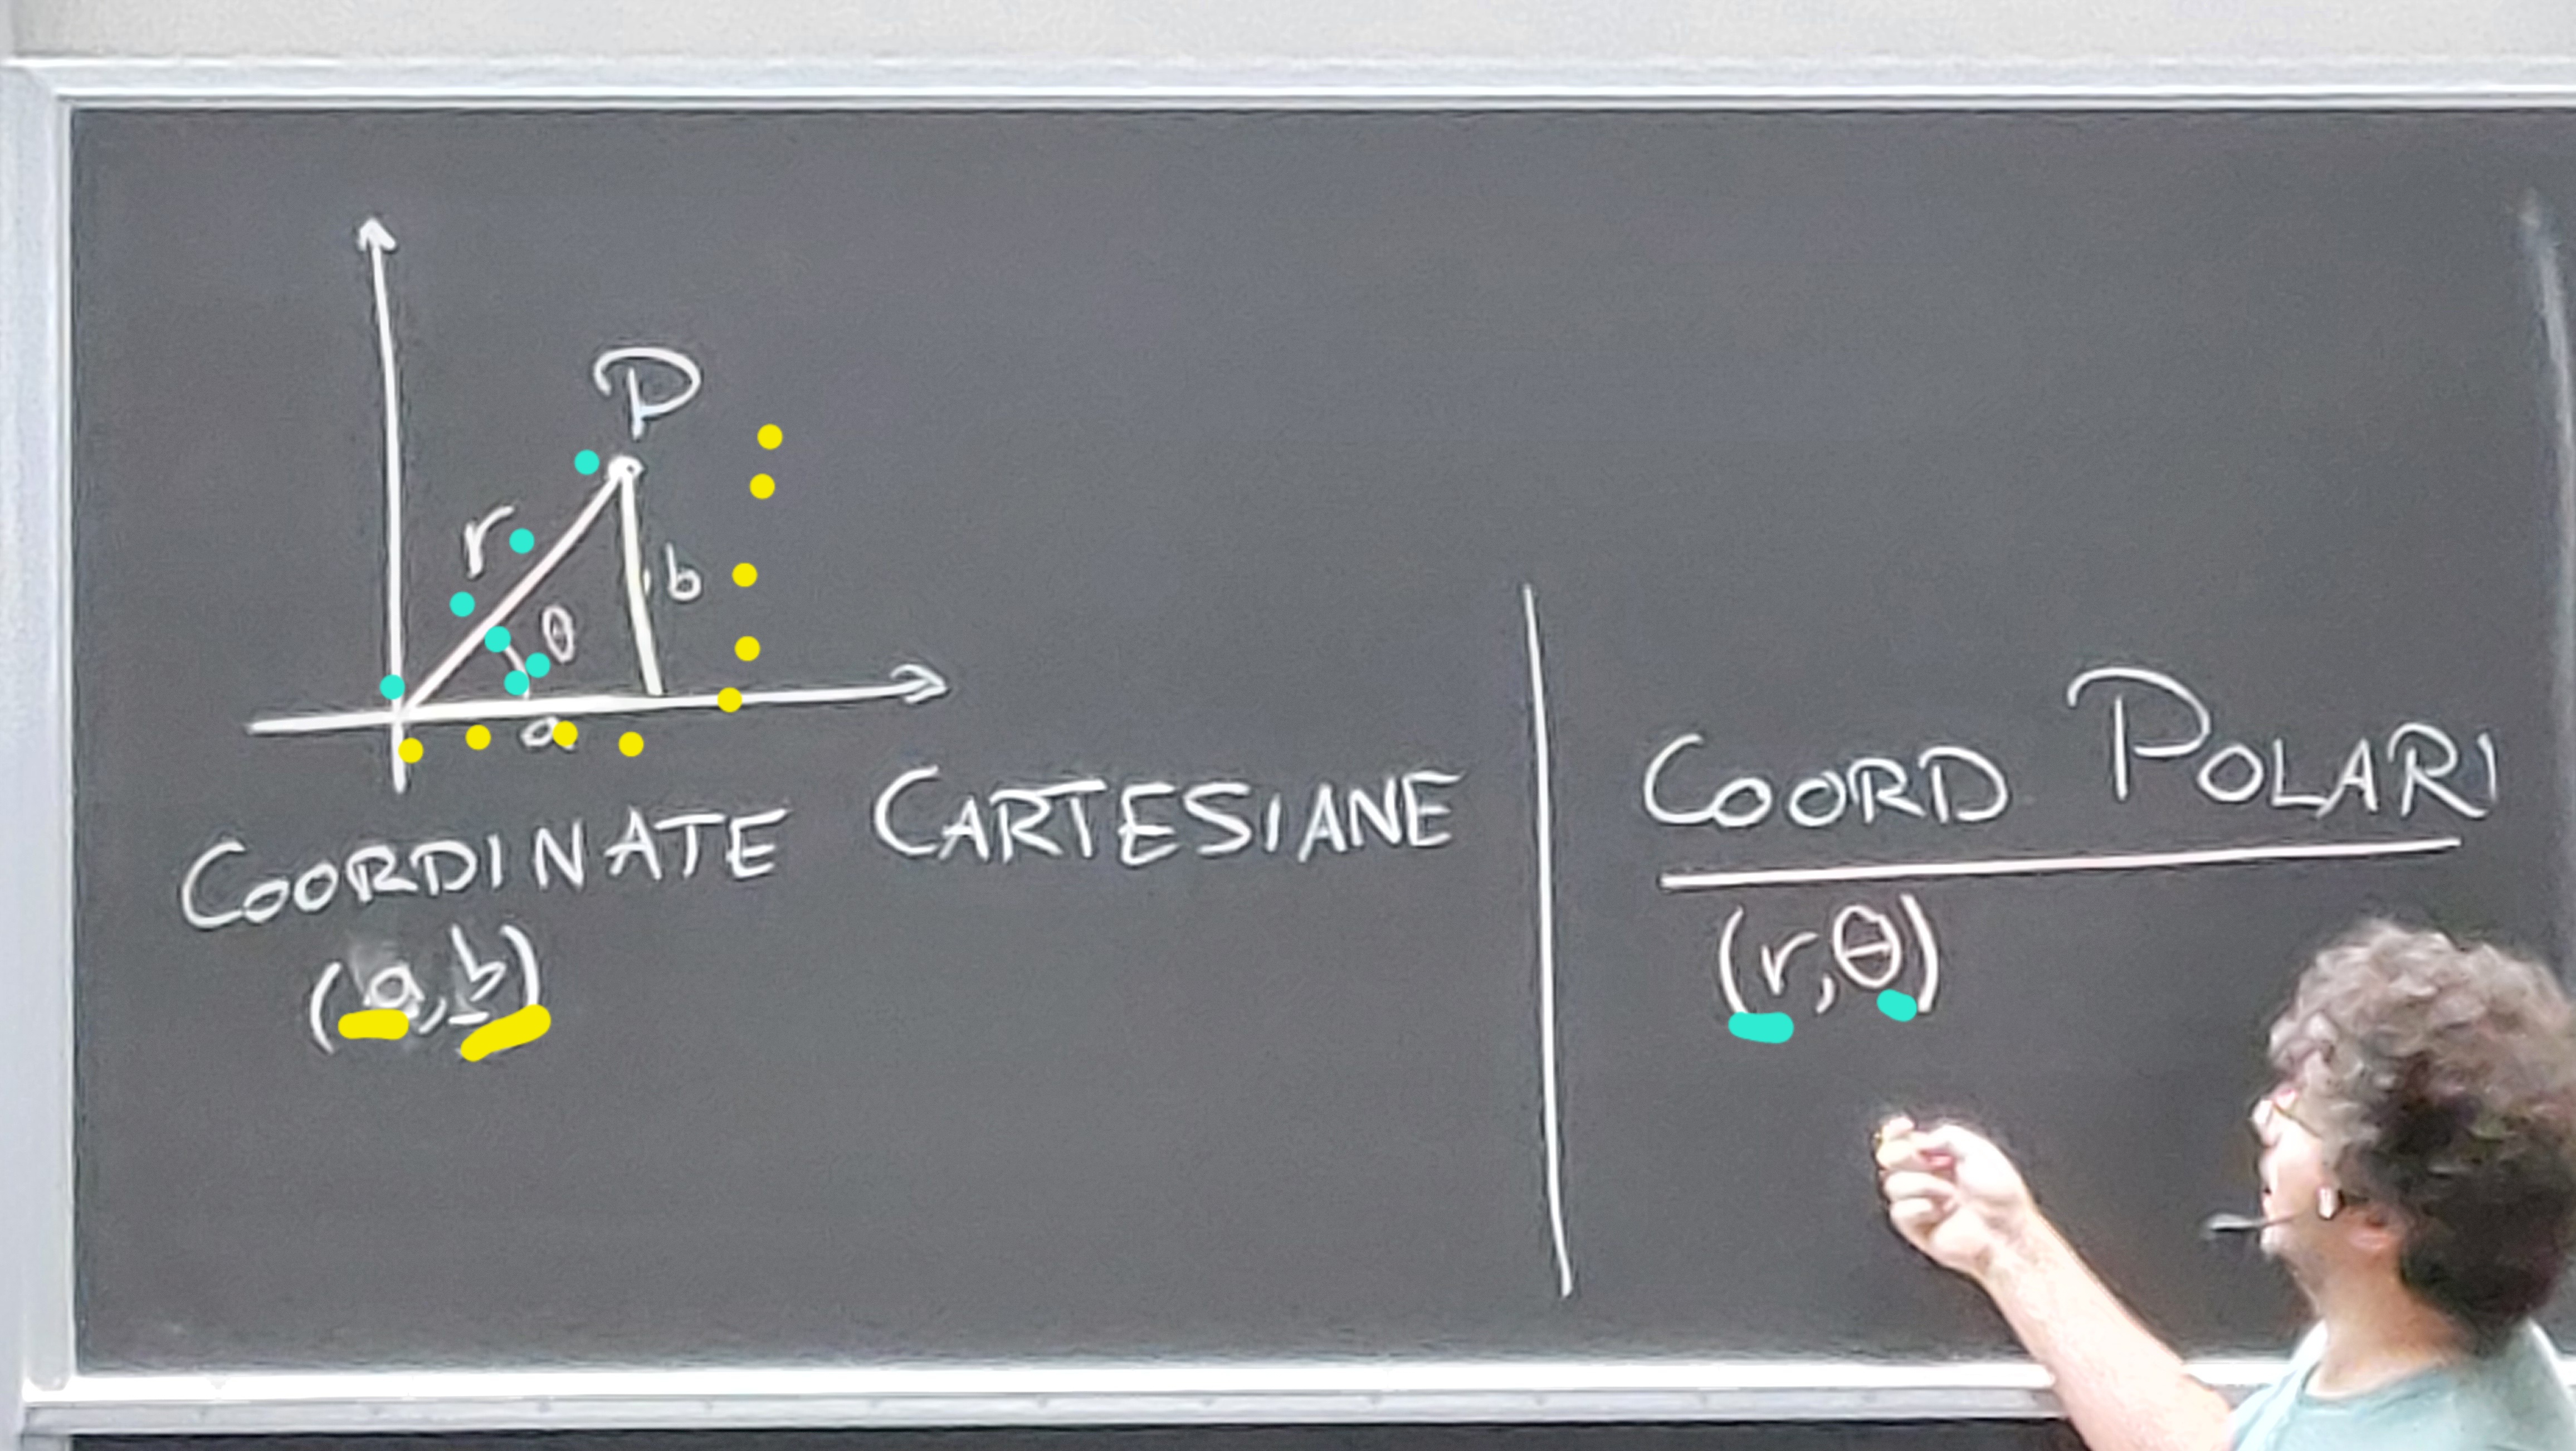 P
r
b
θ
a
COORDINATE CARTESIANE
(a,b)
COORD POLARI
(r,θ)